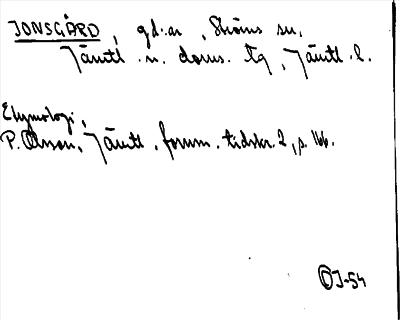 JONSGÅRD, gd:ar, Ströms sn,
Jämtl. n. doms. tg, Jämtl. l.
Etymologi,
P. Olsson, Jämtl. fornm. tidskr. 2, s. 166.
OJ-54